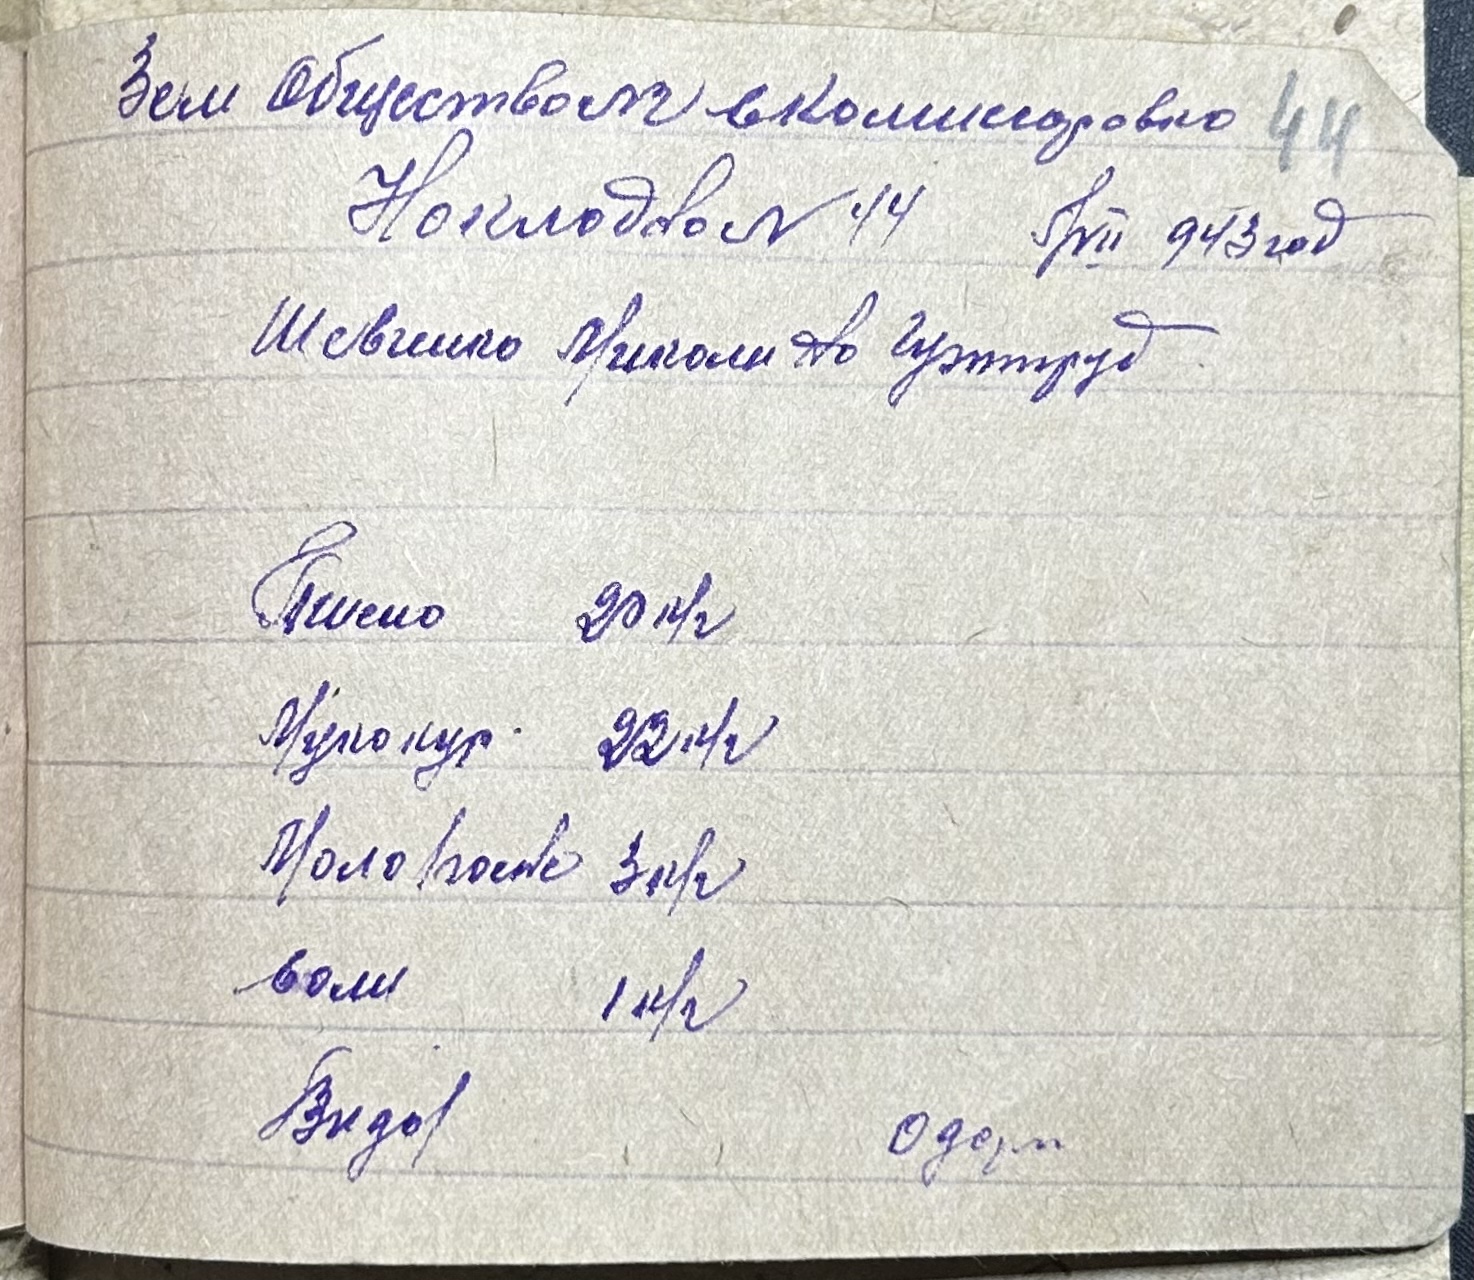 Зем Общество №2 с Комиссаровка 44
Накладная № 44 5/VII 943 год
Шевченко Миколи на Гужтруд
Пшено 20 к/г
Мука кур. 22 к/г
Мола 3 к/г
соли 1 к/г
Видал Одерж